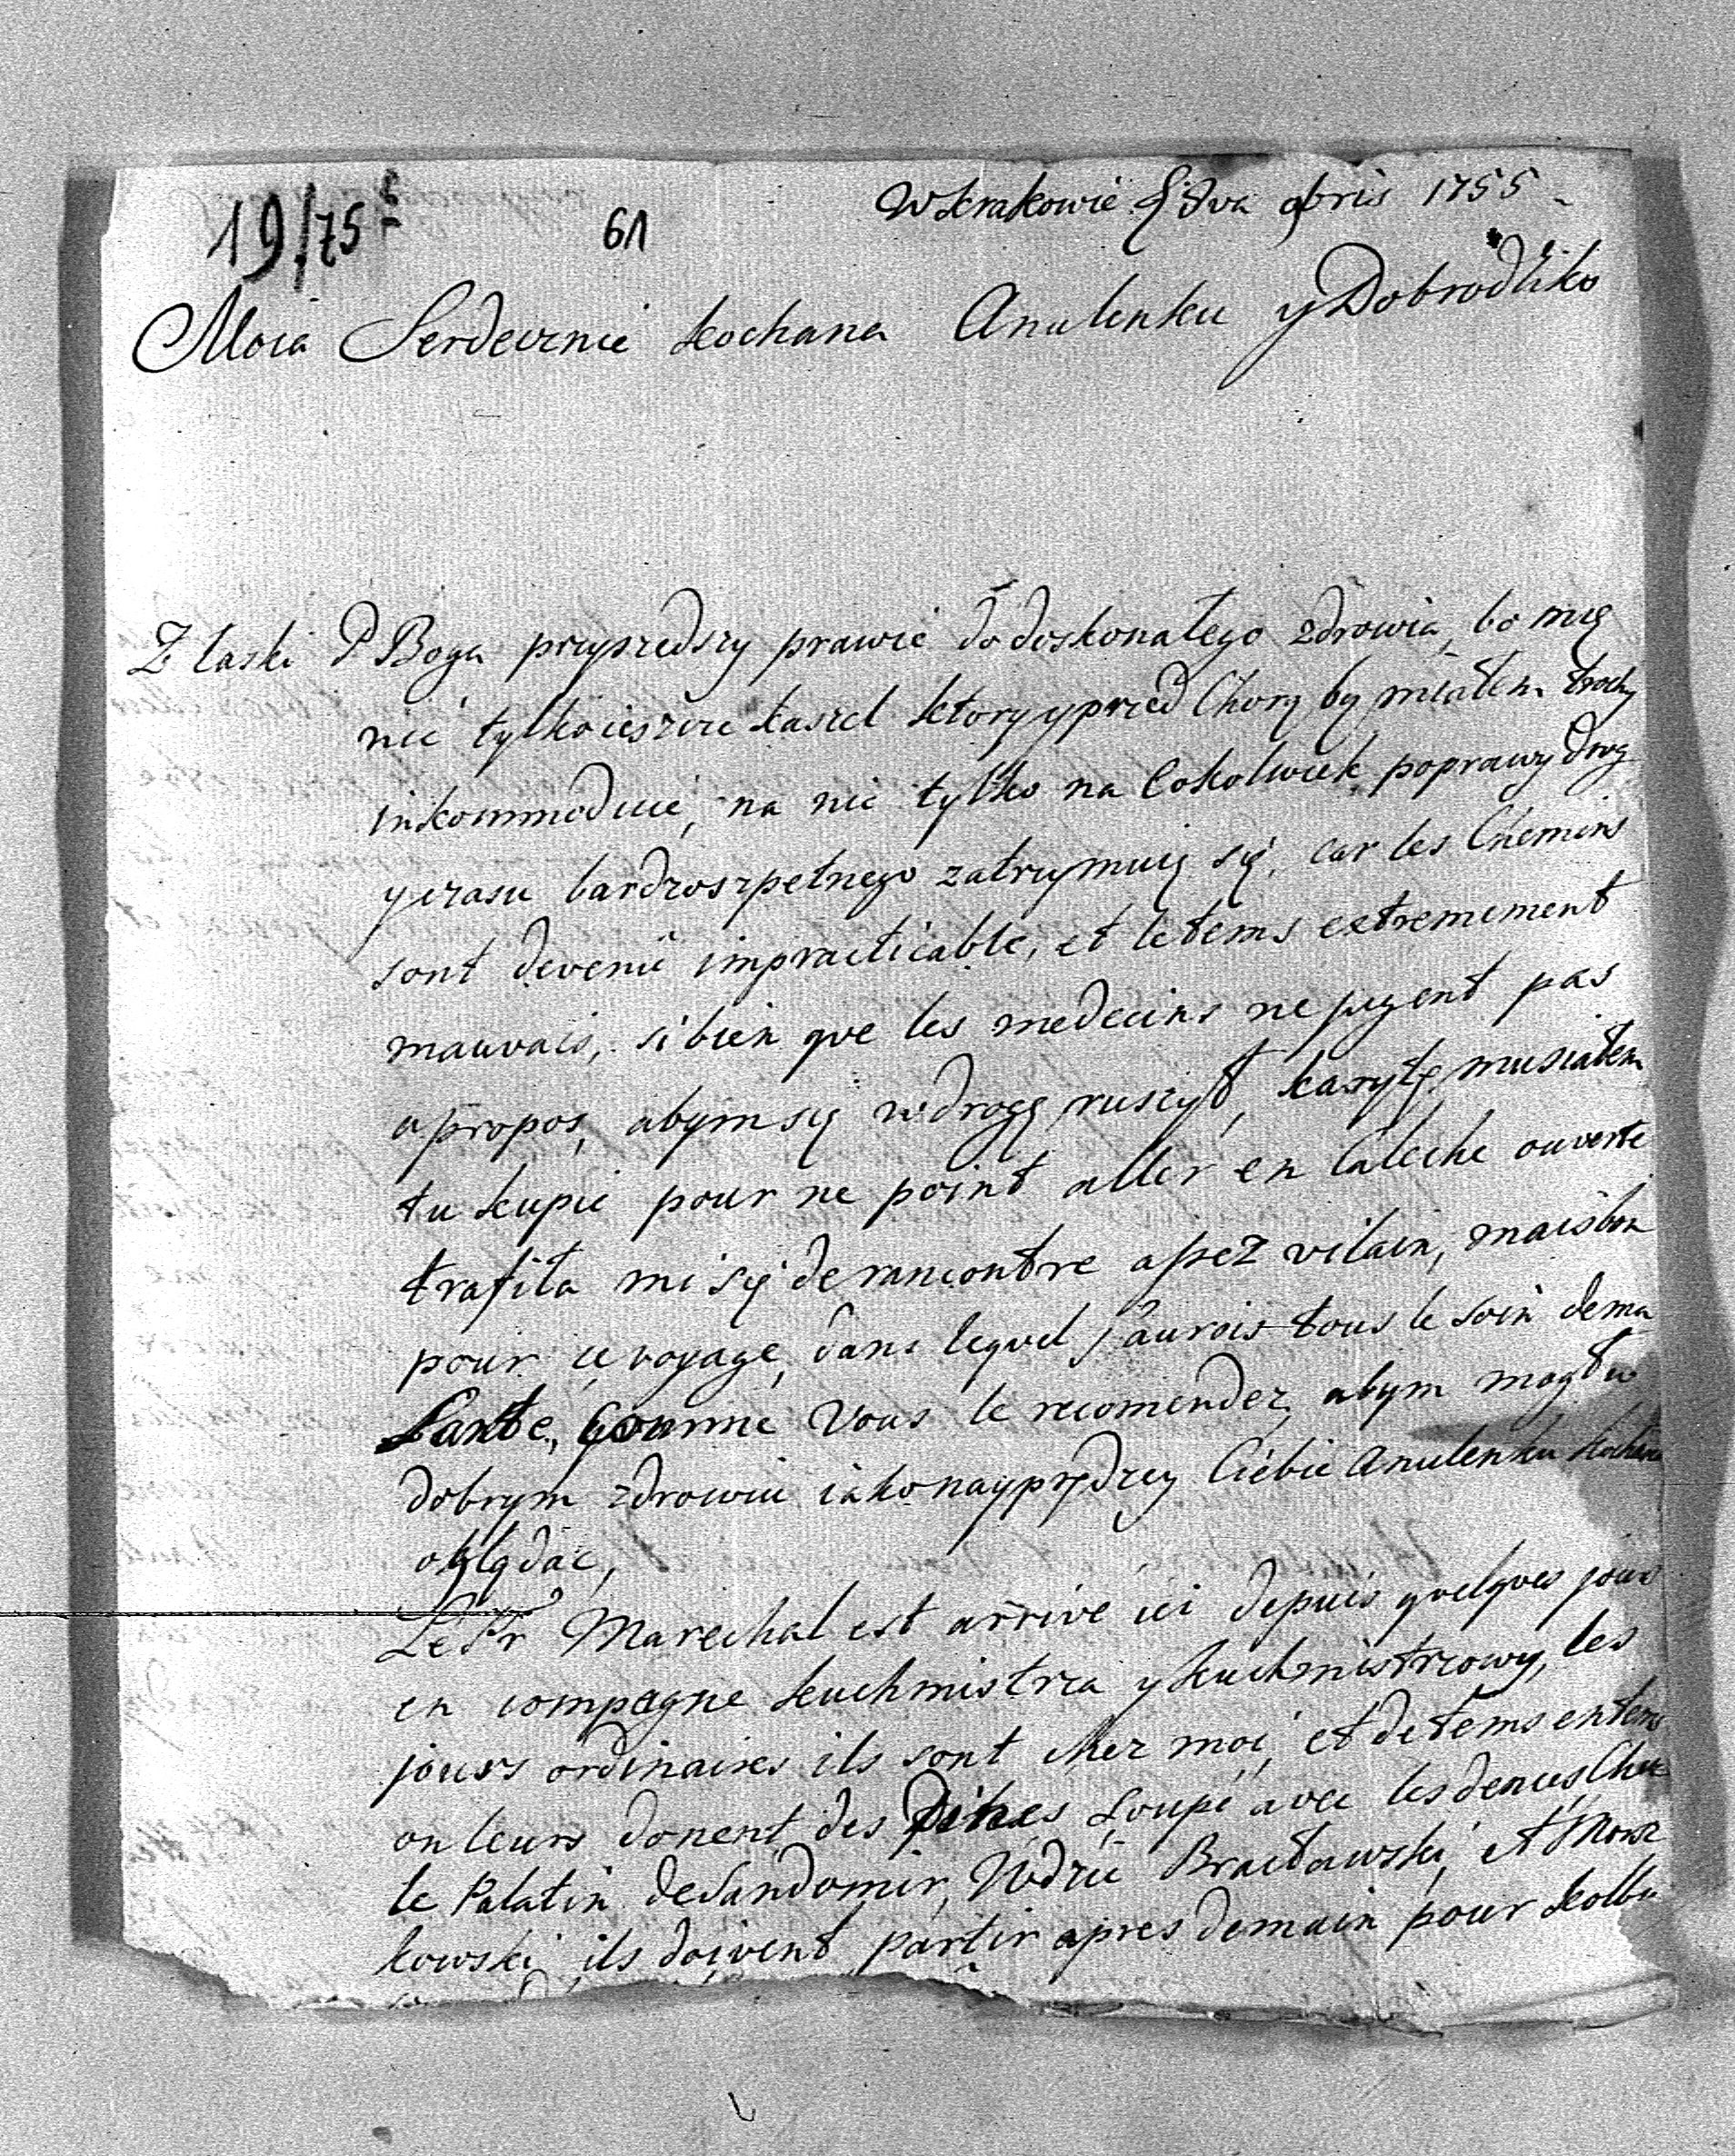 19/75
61
W Krakowie 8va 9bris 1755
Moia Serdecznie kochana Anulenku y Dobrodziko
Z łaski P Boga przyszedszy prawie do doskonałego zdrowia, bo mię
nic tylko ieszcze kaszel ktory y przed Chorobą miałem trochę
inkommoduie, na nic tylko na Cokolwiek poprawy drog
y czasu bardzo szpetnego zatrzymuię się, car les Chemins
sont devenü impracticable, et le tems extremement
mauvais, si bien que les medecins ne jugent pas
apropos, abym się w drogę ruszył, karytę musiałem
tu kupic pour ne point aller en Caleche ouverte
trafiła mi się de rancontre assez vilain, mais bon
pour ce voyage, dans lequel j'aurois tous le soin de ma
Sante, comme Vous le recomendez, abym mogł w
dobrym zdrowiu iako nayprędzey Ciebie Anulenku kochana
oglądac,
Le Pr Marechal est arrivé ici depuis quelques jours
en compagne kuchmistrza y kuchmistrzowy, les
jours ordinaires ils sont chez moi, et de tems en tems
on leurs donent des Dines Soupé avec les
le Palatin de Sandomir, Wdzie Bracławski, et
kowski, ils doivent partir apres demain pour Kolbu